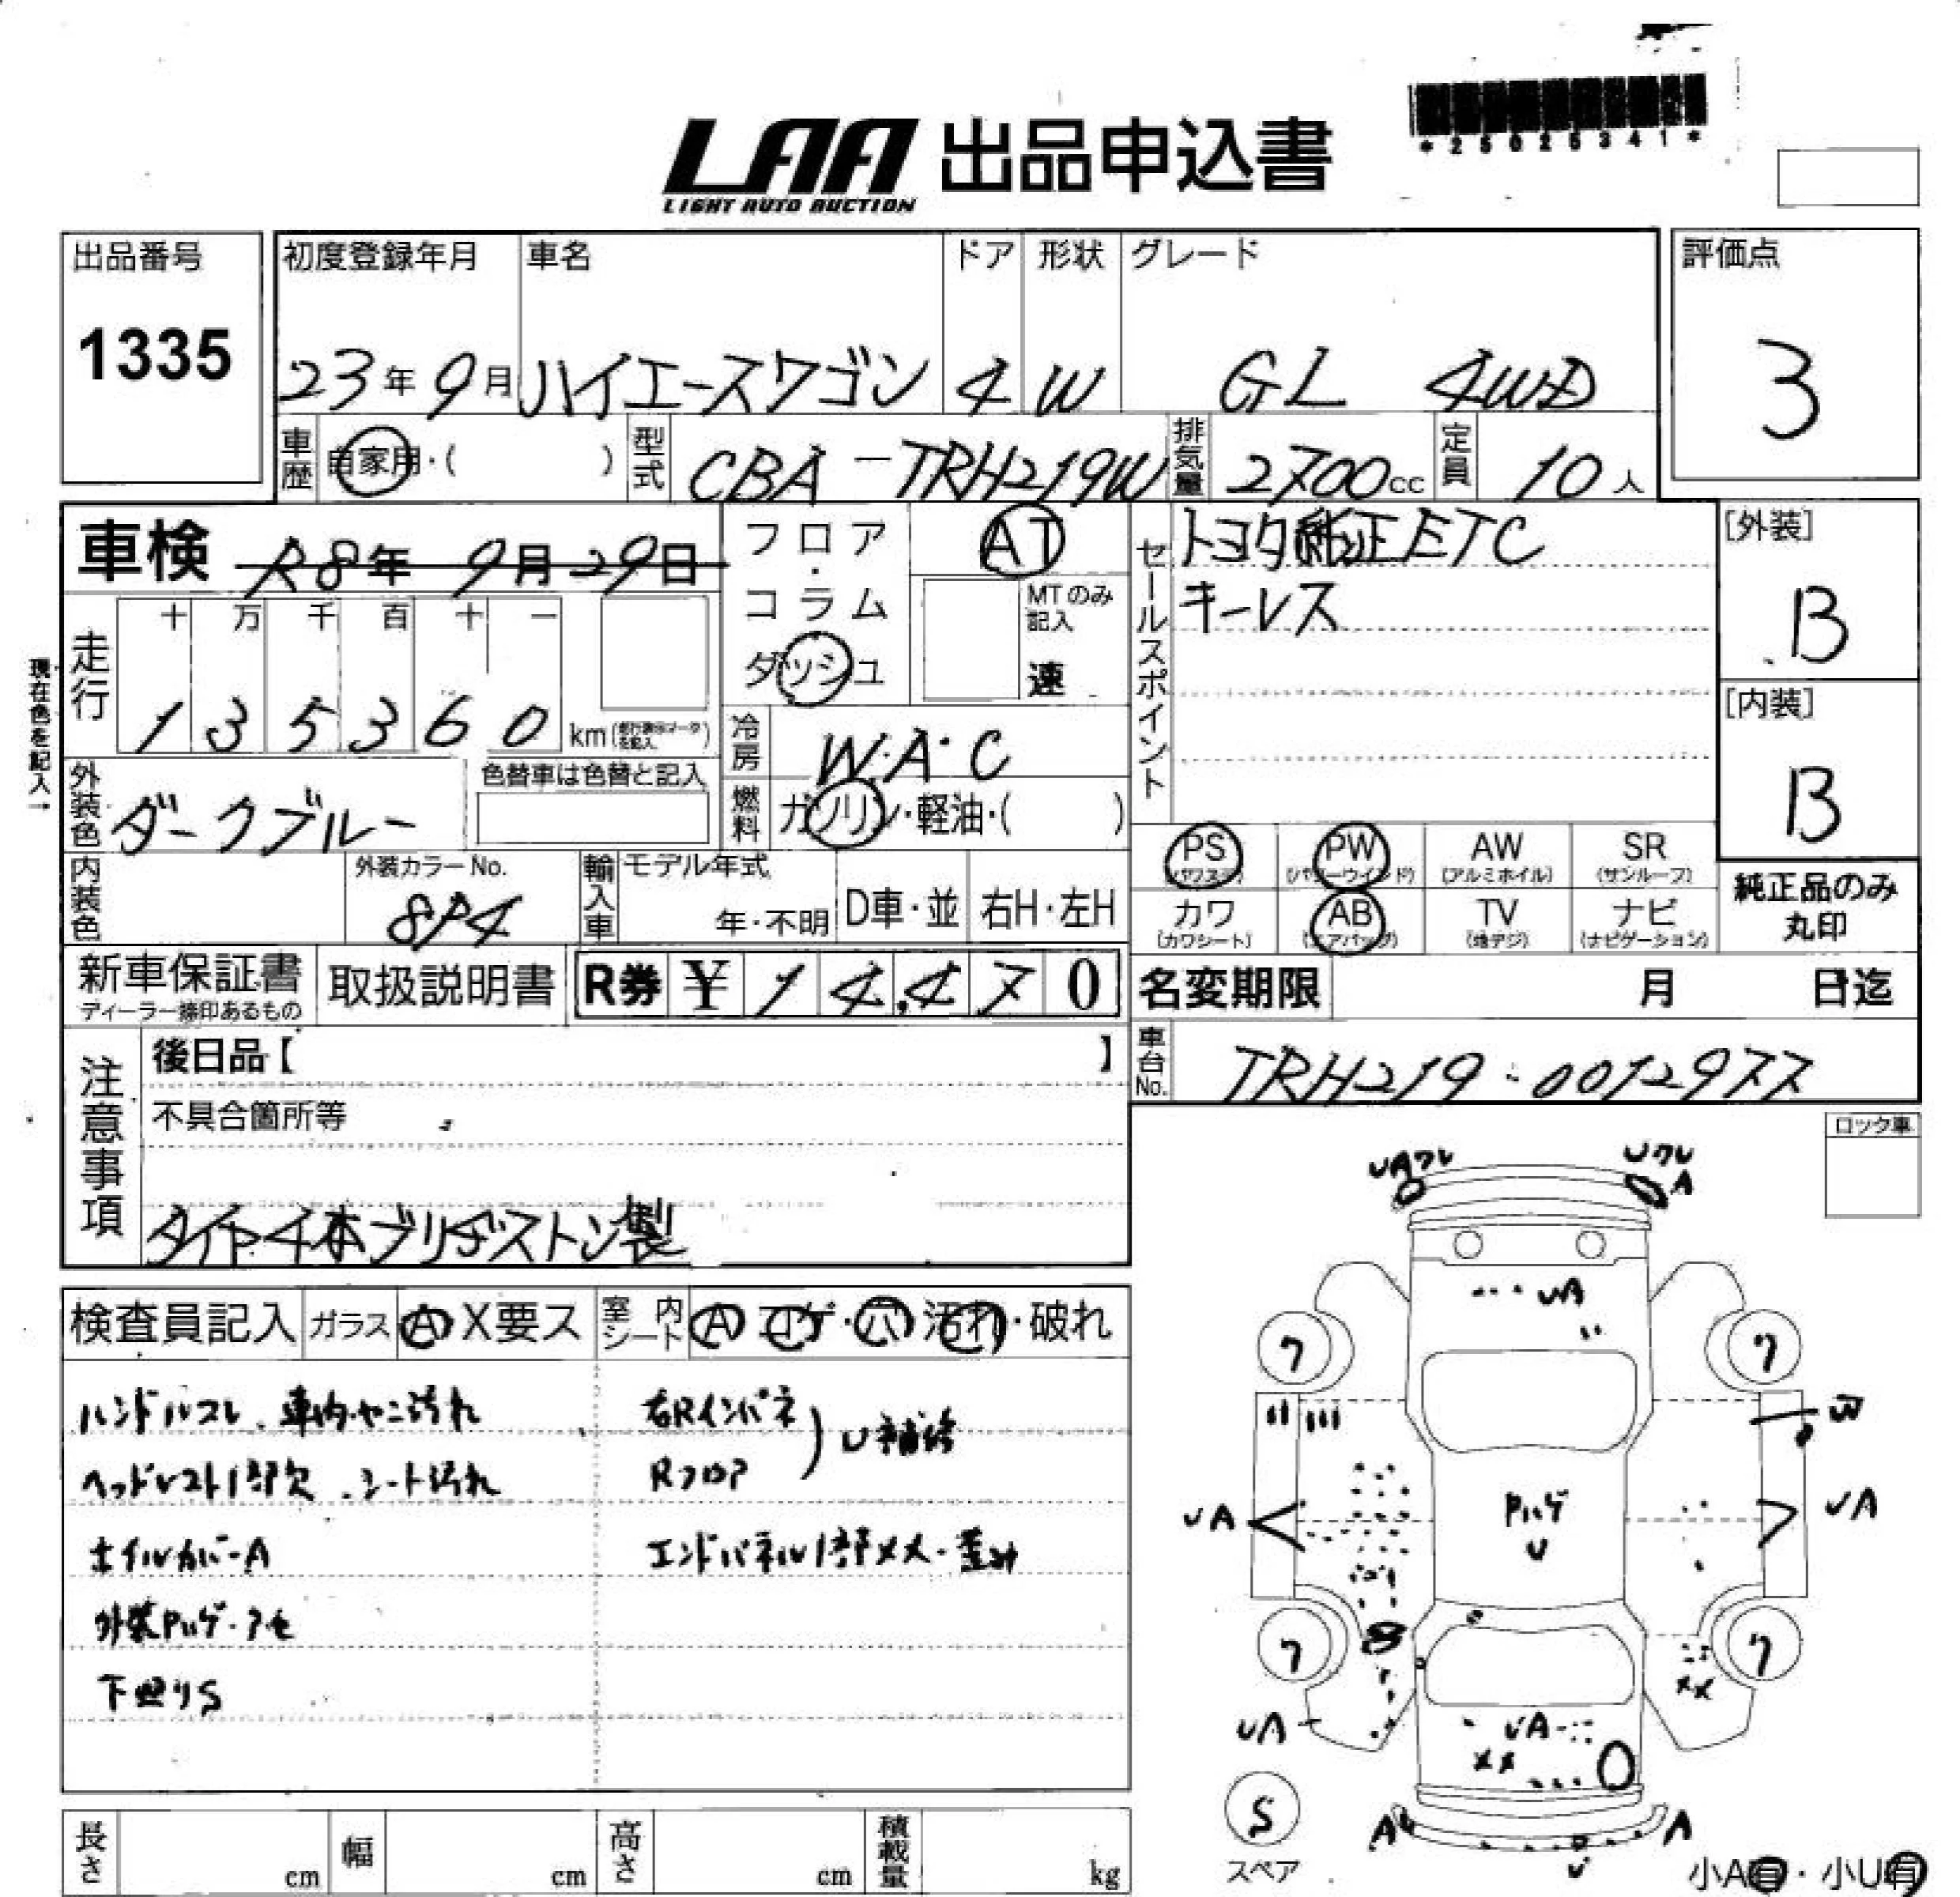 *25025341*
LAA 出品申込書
LIGHT AUTO AUCTION
出品番号
1335
初度登録年月
23年 9月
車名
ハイエースワゴン
ドア
4
形状
W
グレード
GL 4WD
評価点
3
車歴
自家用・( )
型式
CBA-TRH219W
排気量
2700cc
定員
10人
車検 R8年 9月29日
フロア・コラム
ダッシュ
AT
MTのみ記入
速
セールスポイント
トヨタ純正ETC
キーレス
[外装]
B
[内装]
B
現在色を記入→
走行
十 万 千 百 十 一
1 3 5 3 6 0 km
冷房
W.A.C
燃料
ガソリン・軽油・( )
外装色
ダークブルー
色替車は色替と記入
内装色
外装カラーNo.
8P4
輸入車
モデル年式
年・不明
D車・並
右H・左H
PS
(パワステ)
PW
(パワーウインド)
AW
(アルミホイル)
SR
(サンルーフ)
カワ
(カワシート)
AB
(エアバッグ)
TV
(地デジ)
ナビ
(ナビゲーション)
純正品のみ
丸印
新車保証書
ディーラー捺印あるもの
取扱説明書
R券 ¥ 14,470
名変期限 月 日迄
車台No.
TRH219-0012977
注意事項
後日品【 】
不具合箇所等
タイヤ4本ブリヂストン製
ロック車
検査員記入
ガラス
A X要ス
室内シート
A コゲ・穴・汚れ・破れ
ハンドルスレ、車内ヤニ汚れ
ヘッドレスト1部欠、シート汚れ
ホイルカバーA
外装Pハゲ・アセ
下廻りS
右Rインパネ
Rフロア
U補修
エンドパネル1部メメ・歪み
UAワレ
Uワレ
A
UA
ワ
ワ
W
UA
UA
Pハゲ
U
ワ
ワ
XX
UA
UA
XX
S
スペア
A
A
U
小A有・小U有
長さ cm
幅 cm
高さ cm
積載量 kg